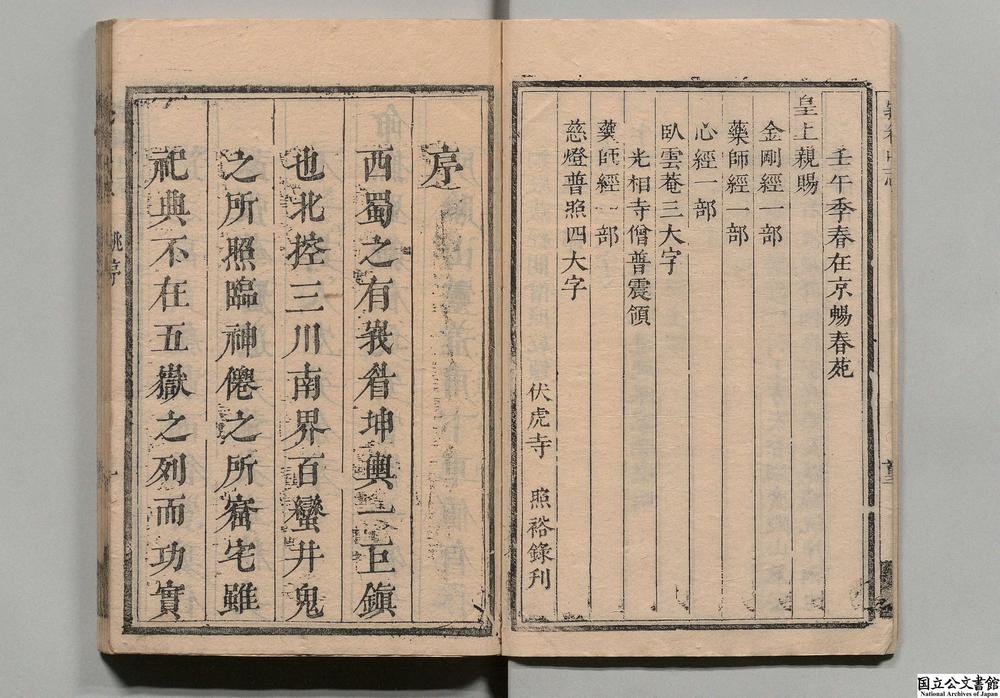 壬午季春在京暢春苑
皇上親賜
金剛經一部
藥師經一部
心經一部
臥雲菴三大字
光相寺僧普震領
藥師經一部
慈燈普照四大字
伏虎寺 照裕錄刋
序
西蜀之有峩眉坤輿一巨鎮
也北控三川南界百蠻井鬼
之所照臨神僊之所窟宅雖
祀典不在五嶽之列而功實
姚序
国立公文書館
National Archives of Japan